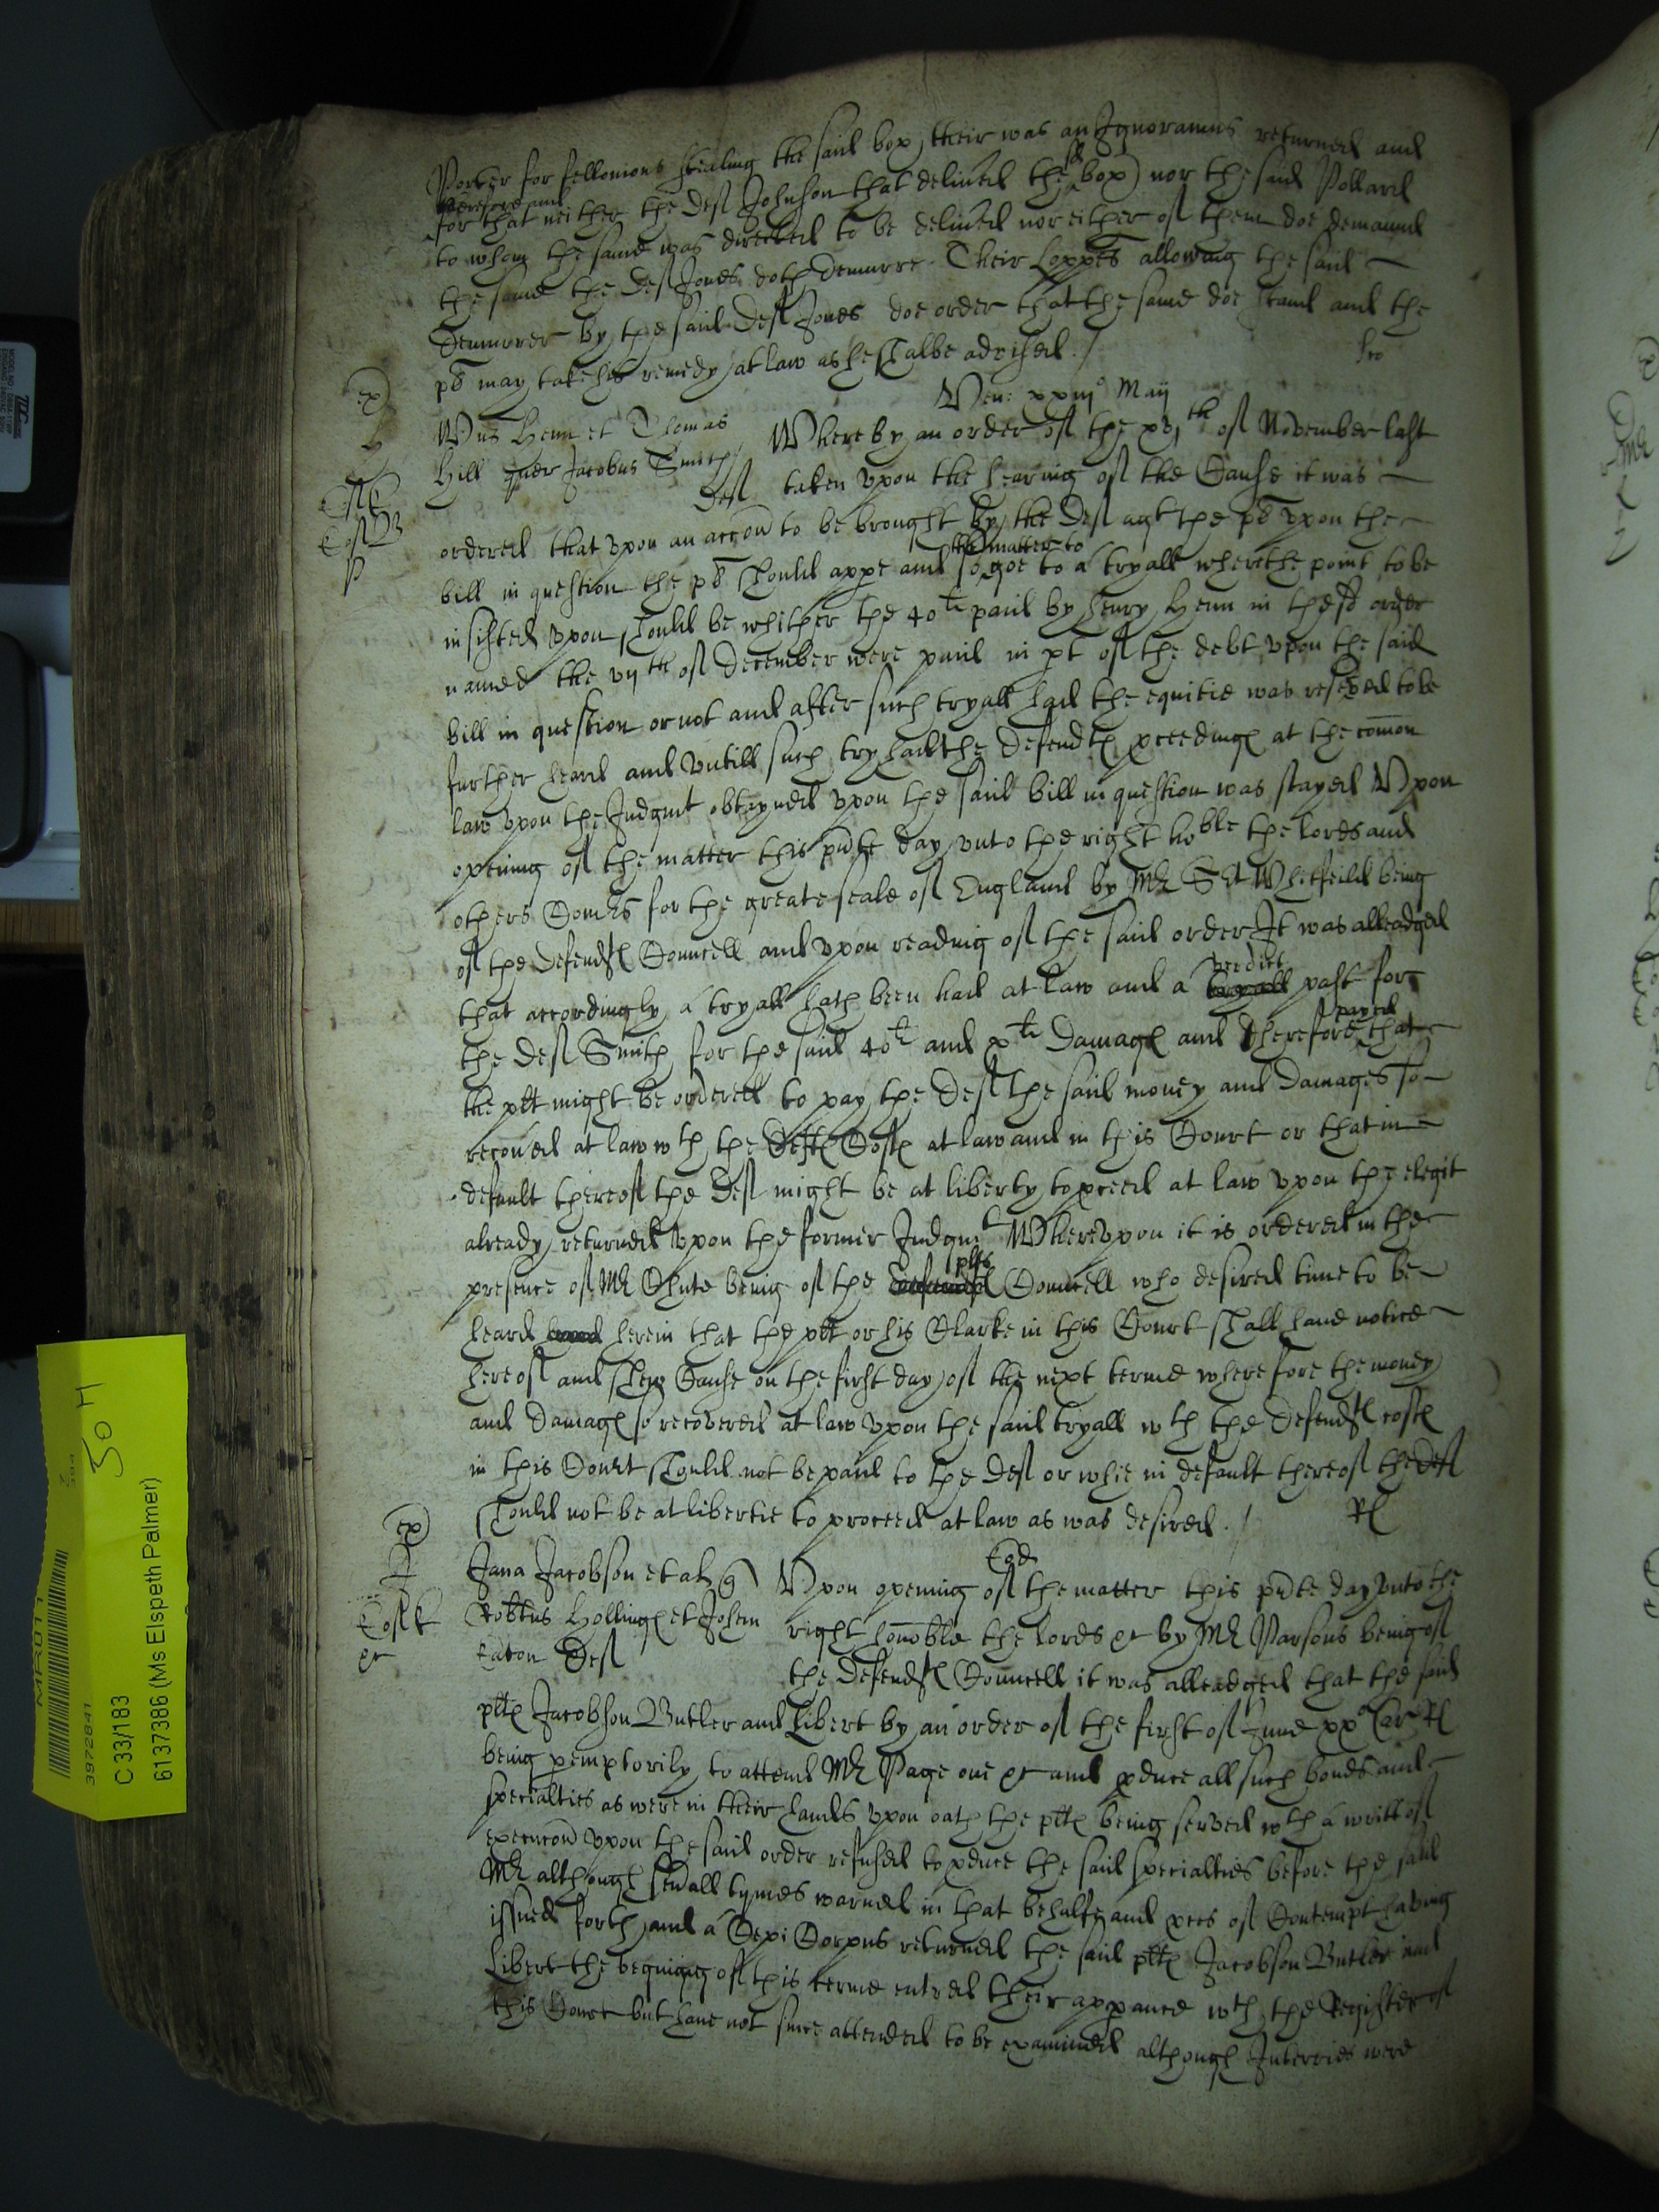 Porter for fellonious stealing the said box, their was an Ignoramus returned and
therefore and
for that neither the Def Johnson that deliued the sd box) nor the said Pollard
to whom the same was directed to be deliued nor either of them doe demaund
the same the Def Jones doth demurre. Their Lopps allowing the said
Demurrer by the said Def Jones doe order that the same doe stand and the
pl may take his remedy at law as he shalbe advised./
Ven: xxiij° Maij
Wm Henn et Thomas
Hill quer Jacobus Smith
Def
Whereby an order of the xvjth of November last
taken vpon the hearing of the Cause it was
ordered that vpon an accon to be brought by the Def agt the pl vpon the
bill in question the pl should appe and so the matter to goe to a tryall where the point to be
insisted vpon should be whither the 40li paid by Henry Henn in the sd order
named the vijth of December were paid in pt of the debt vpon the said
bill in question or not and after such tryall had the equitie was reserved to be
further heard and vntill such try had the defendts pceedings at the comon
law vpon the Judgmt obtayned vpon the said bill in question was stayed Vpon
opening of the matter this pnte day vnto the right hoble the lords and
others Comrs for the greate seale of England by Mr Sit Whitfeild being
of the defendts Councell and vpon reading of the said order It was alleadged
that accordingly a tryall hath been had at law and a tryall verdict past for
the Def Smith for the said 40li and xli Damages and therefore prayed that
the plt might be ordered to pay the Def the said money and damages so
recoued at law wth the Defts Costs at law and in this Court or that in
default thereof the Def might be at liberty to pceed at law vpon the elegit
already returned vpon the former Judgmt Wherevpon it is ordered in the
presence of Mr Chute being of the defendts plts Councell who desired time to be
heard heard herein that the plt or his Clarke in this Court shall haue notice
hereof and shew Cause on the first day of the next terme wherefore the money
and damages so recovered at law vpon the said tryall wth the defendts costs
in this Court should not be paid to the Def or whie in default thereof the Def
should not be at libertie to proceed at law as was desired./
Eod
Jana Jacobson et al q
Robtus Hollings et Johem
Eaton Def
Vpon opening of the matter this pnte day vnto the
right honoble the lords &c by Mr Parsons being of
the defendts Councell it was alleadged that the said
plts Jacobson Butler and Libert by an order of the first of June xx° Car Rs
being pemptorily to attend Mr Page one &c and pduce all such bonds and
specialties as were in their hands vpon oath the plts being served wth a writt of
execucon vpon the said order refused to pduce the said specialties before the said
Mr although seuall tymes warned in that behalfe and pces of Contempt having
issued forth and a Cepi Corpus returned the said plts Jacobson Butler and
Libert the begining of this terme entred their appance wth the Register of
this Court but haue not since attended to be examined although Interries were
MR011
3972841
C 33/183
6137386 (Ms Elspeth Palmer)
50 H